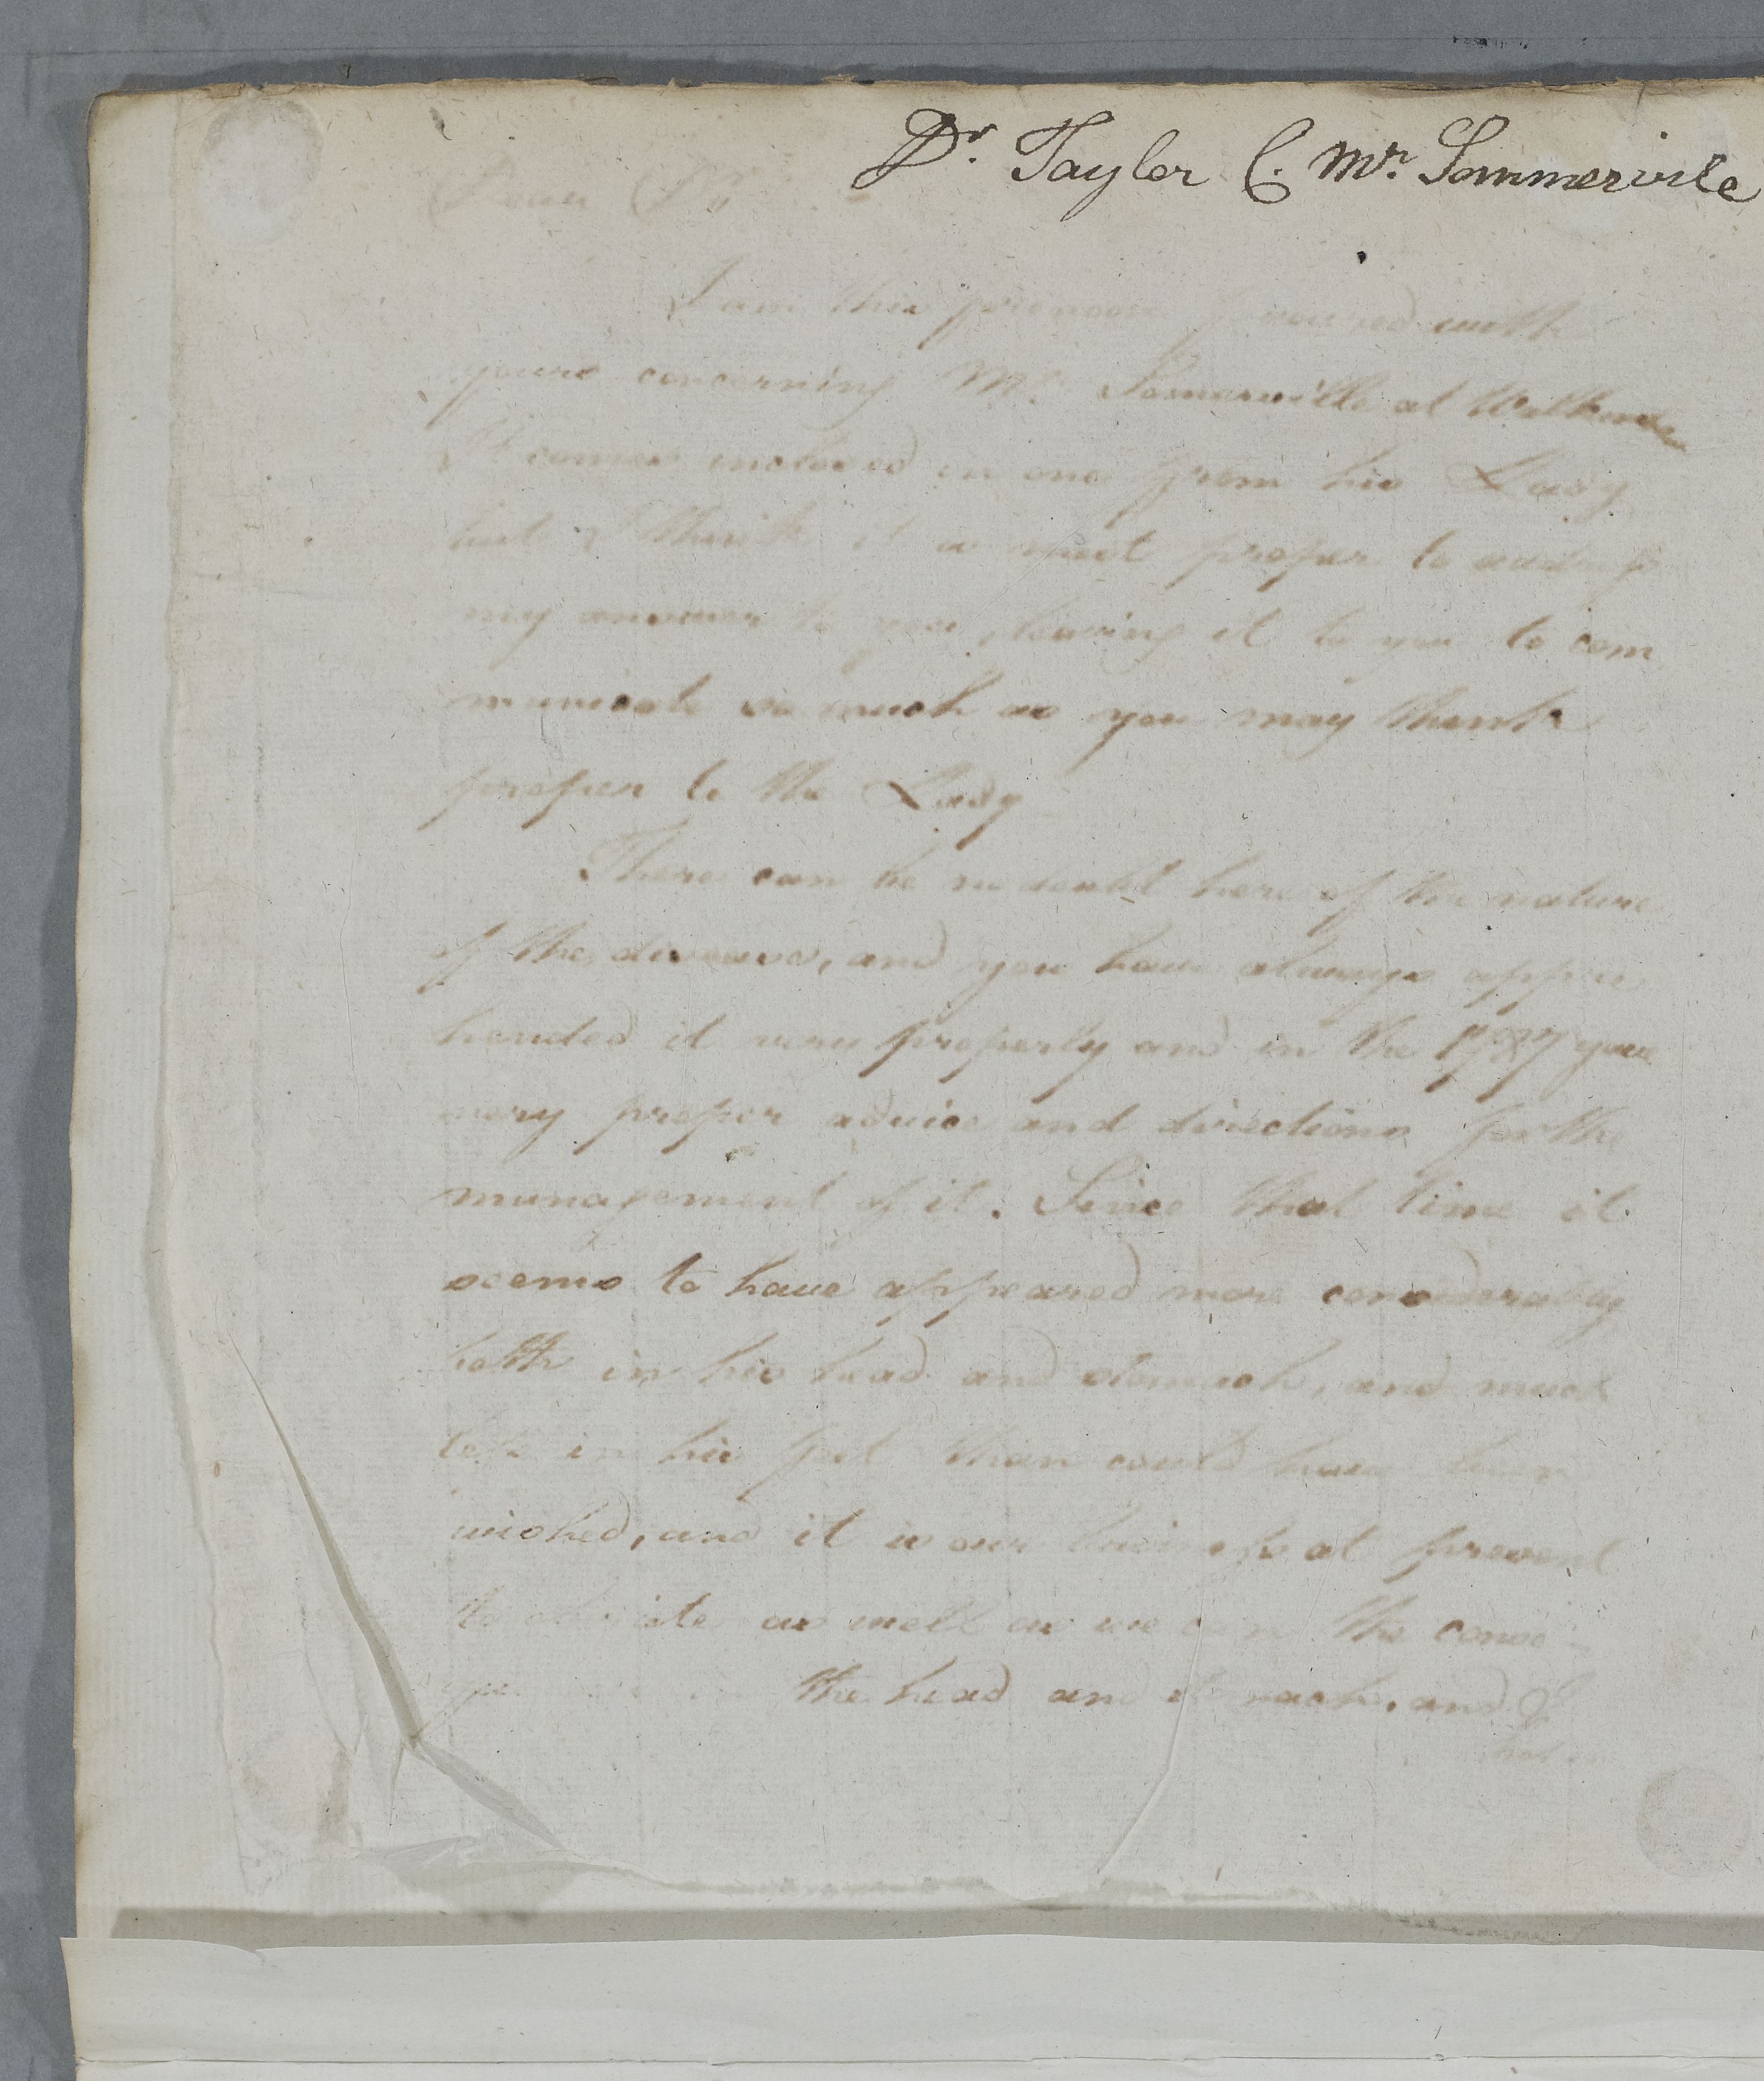 Dr. Tayler C. Mr. Sommerville
Dear Dr.
I am this forenoon favoured with
yours concerning Mr. Somerville at
It comes inclosed in one from his Lady
but I think it is most proper to
my answer to you, leaving it to you to com
municate so much as you may think
proper to the Lady
There can be no doubt here of the nature
of the disease, and you have always appre
hended it very properly and in the 1787 gave
very proper advice and directions for the
management of it. Since that time it
seems to have appeared more considerably
both in his head and stomach, and much
less in his feet than could have been
wished, and it is our business at present
to obviate as well as we can the conse
the head and stomach, and I